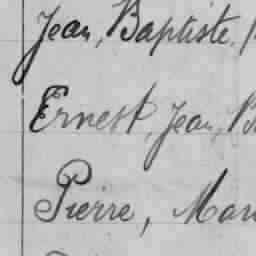 Jean, Baptiste,
Ernest, Jean,
Pierre,